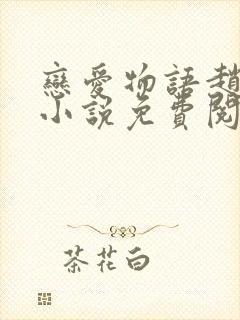 戀愛物語趙
小說免費閱
茶花白